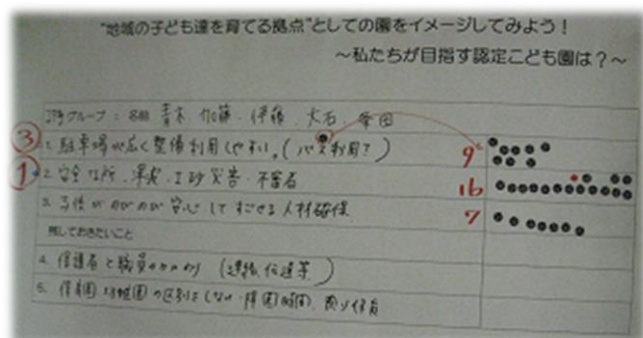 "地域の子ども達を育てる拠点"としての園をイメージしてみよう！
～私たちが目指す認定こども園は？～
グループ：名前 青木、加藤、伊藤、大石
③ 1. 駐車場が広く整備利用しやすい。(バス利用？) 9
① 2. 安全な所、津波、土砂災害・不審者 16
3. 子供がのびのび安心してすごせる人材確保 7
残しておきたいこと
4. 保護者と職員のかかわり (連絡、伝達等)
5. 保育園、幼稚園の区別をしない・降園時間